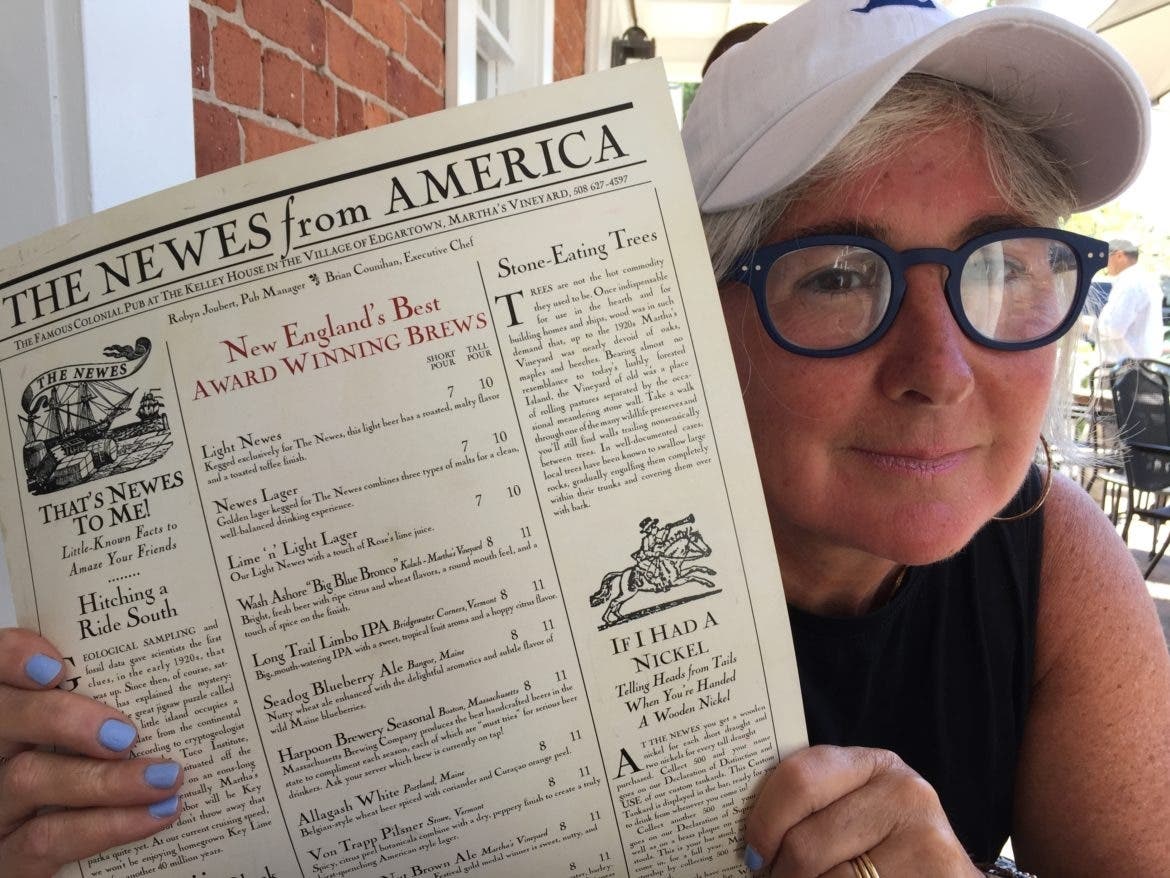 THE NEWES from AMERICA
THE FAMOUS COLONIAL PUB AT THE KELLEY HOUSE IN THE VILLAGE OF EDGARTOWN, MARTHA'S VINEYARD, 508 627-4397
Robyn Joubert, Pub Manager Brian Counihan, Executive Chef
THE NEWES
THAT'S NEWES
TO ME!
Little-Known Facts to
Amaze Your Friends
Hitching a
Ride South
GEOLOGICAL SAMPLING and
fossil data gave scientists the first
clues, in the early 1920s, that
was up. Since then, of course, sat-
has explained the mystery:
great jigsaw puzzle called
little island occupies a
from the continental
According to cryptogeologist
Tuco Institute,
off the
on an eons-long
Martha's
will be Key
don't throw away that
parka quite yet. At our current cruising speed,
we won't be enjoying homegrown Key Lime
another 40 million years.
New England's Best
AWARD WINNING BREWS
SHORT TALL
POUR POUR
7 10
Light Newes
Kegged exclusively for The Newes, this light beer has a roasted, malty flavor
and a roasted toffee finish.
7 10
Newes Lager
Golden lager kegged for The Newes combines three types of malts for a clean,
well-balanced drinking experience.
7 10
Lime 'n' Light Lager
Our Light Newes with a touch of Rose's lime juice.
Wash Ashore "Big Blue Bronco" Kolsch - Martha's Vineyard 8 11
Bright, fresh beer with ripe citrus and wheat flavors, a round mouth feel, and a
touch of spice on the finish.
Long Trail Limbo IPA Bridgewater Corners, Vermont 8 11
Big, mouth-watering IPA with a sweet, tropical fruit aroma and a hoppy citrus flavor.
8 11
Seadog Blueberry Ale Bangor, Maine
Nutty wheat ale enhanced with the delightful aromatics and subtle flavor of
wild Maine blueberries.
Harpoon Brewery Seasonal Boston, Massachusetts 8 11
Massachusetts Brewing Company produces the best handcrafted beers in the
state to compliment each season, each of which are "must tries" for serious beer
drinkers. Ask your server which brew is currently on tap!
8 11
Allagash White Portland, Maine
Belgian-style wheat beer spiced with coriander and Curaçao orange peel.
8 11
Von Trapp Pilsner Stowe, Vermont
Spicy, citrus peel botanicals combine with a dry, peppery finish to create a truly
thirst-quenching American-style lager.
Nut Brown Ale Martha's Vineyard 8 11
Festival gold medal winner is sweet, nutty, and
8 11
Stone-Eating Trees
TREES are not the hot commodity
they used to be. Once indispensable
for use in the hearth and for
building homes and ships, wood was in such
demand that, up to the 1920s Martha's
Vineyard was nearly devoid of oaks,
maples and beeches. Bearing almost no
resemblance to today's lushly forested
Island, the Vineyard of old was a place
of rolling pastures separated by the occa-
sional meandering stone wall. Take a walk
through one of the many wildlife preserves and
you'll still find walls trailing nonsensically
between trees. In well-documented cases,
local trees have been known to swallow large
rocks, gradually engulfing them completely
within their trunks and covering them over
with bark.
IF I HAD A
NICKEL
Telling Heads from Tails
When You're Handed
A Wooden Nickel
AT THE NEWES you get a wooden
nickel for each short draught and
two nickels for every tall draught
purchased. Collect 500 and your name
goes on our Declaration of Distinction and
USE of our custom tankards. This Custom
Tankard is displayed in the bar, ready for you
to drink from whenever you come in.
Collect another 500 and
goes on our Declaration of
well as on a brass plaque on
stools. This is your bar
come in, for a full year.
by collecting 500